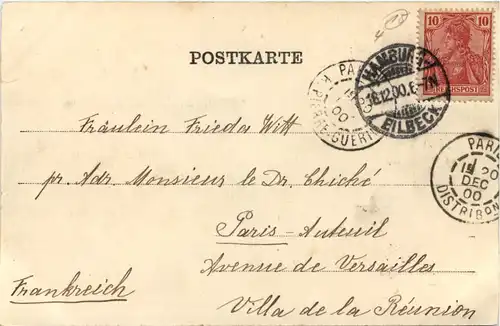 10 10
REICHSPOST
POSTKARTE
HAMBURG
12.00.
EILBECK
PARIS
00
Fräulein Frieda Witt
pr. Adr. Monsieur le Dr. Chiché
Paris-Auteuil
Avenue de Versailles
Villa de la Réunion
Frankreich
PARI
20
DEC
00
DISTRIBUTION